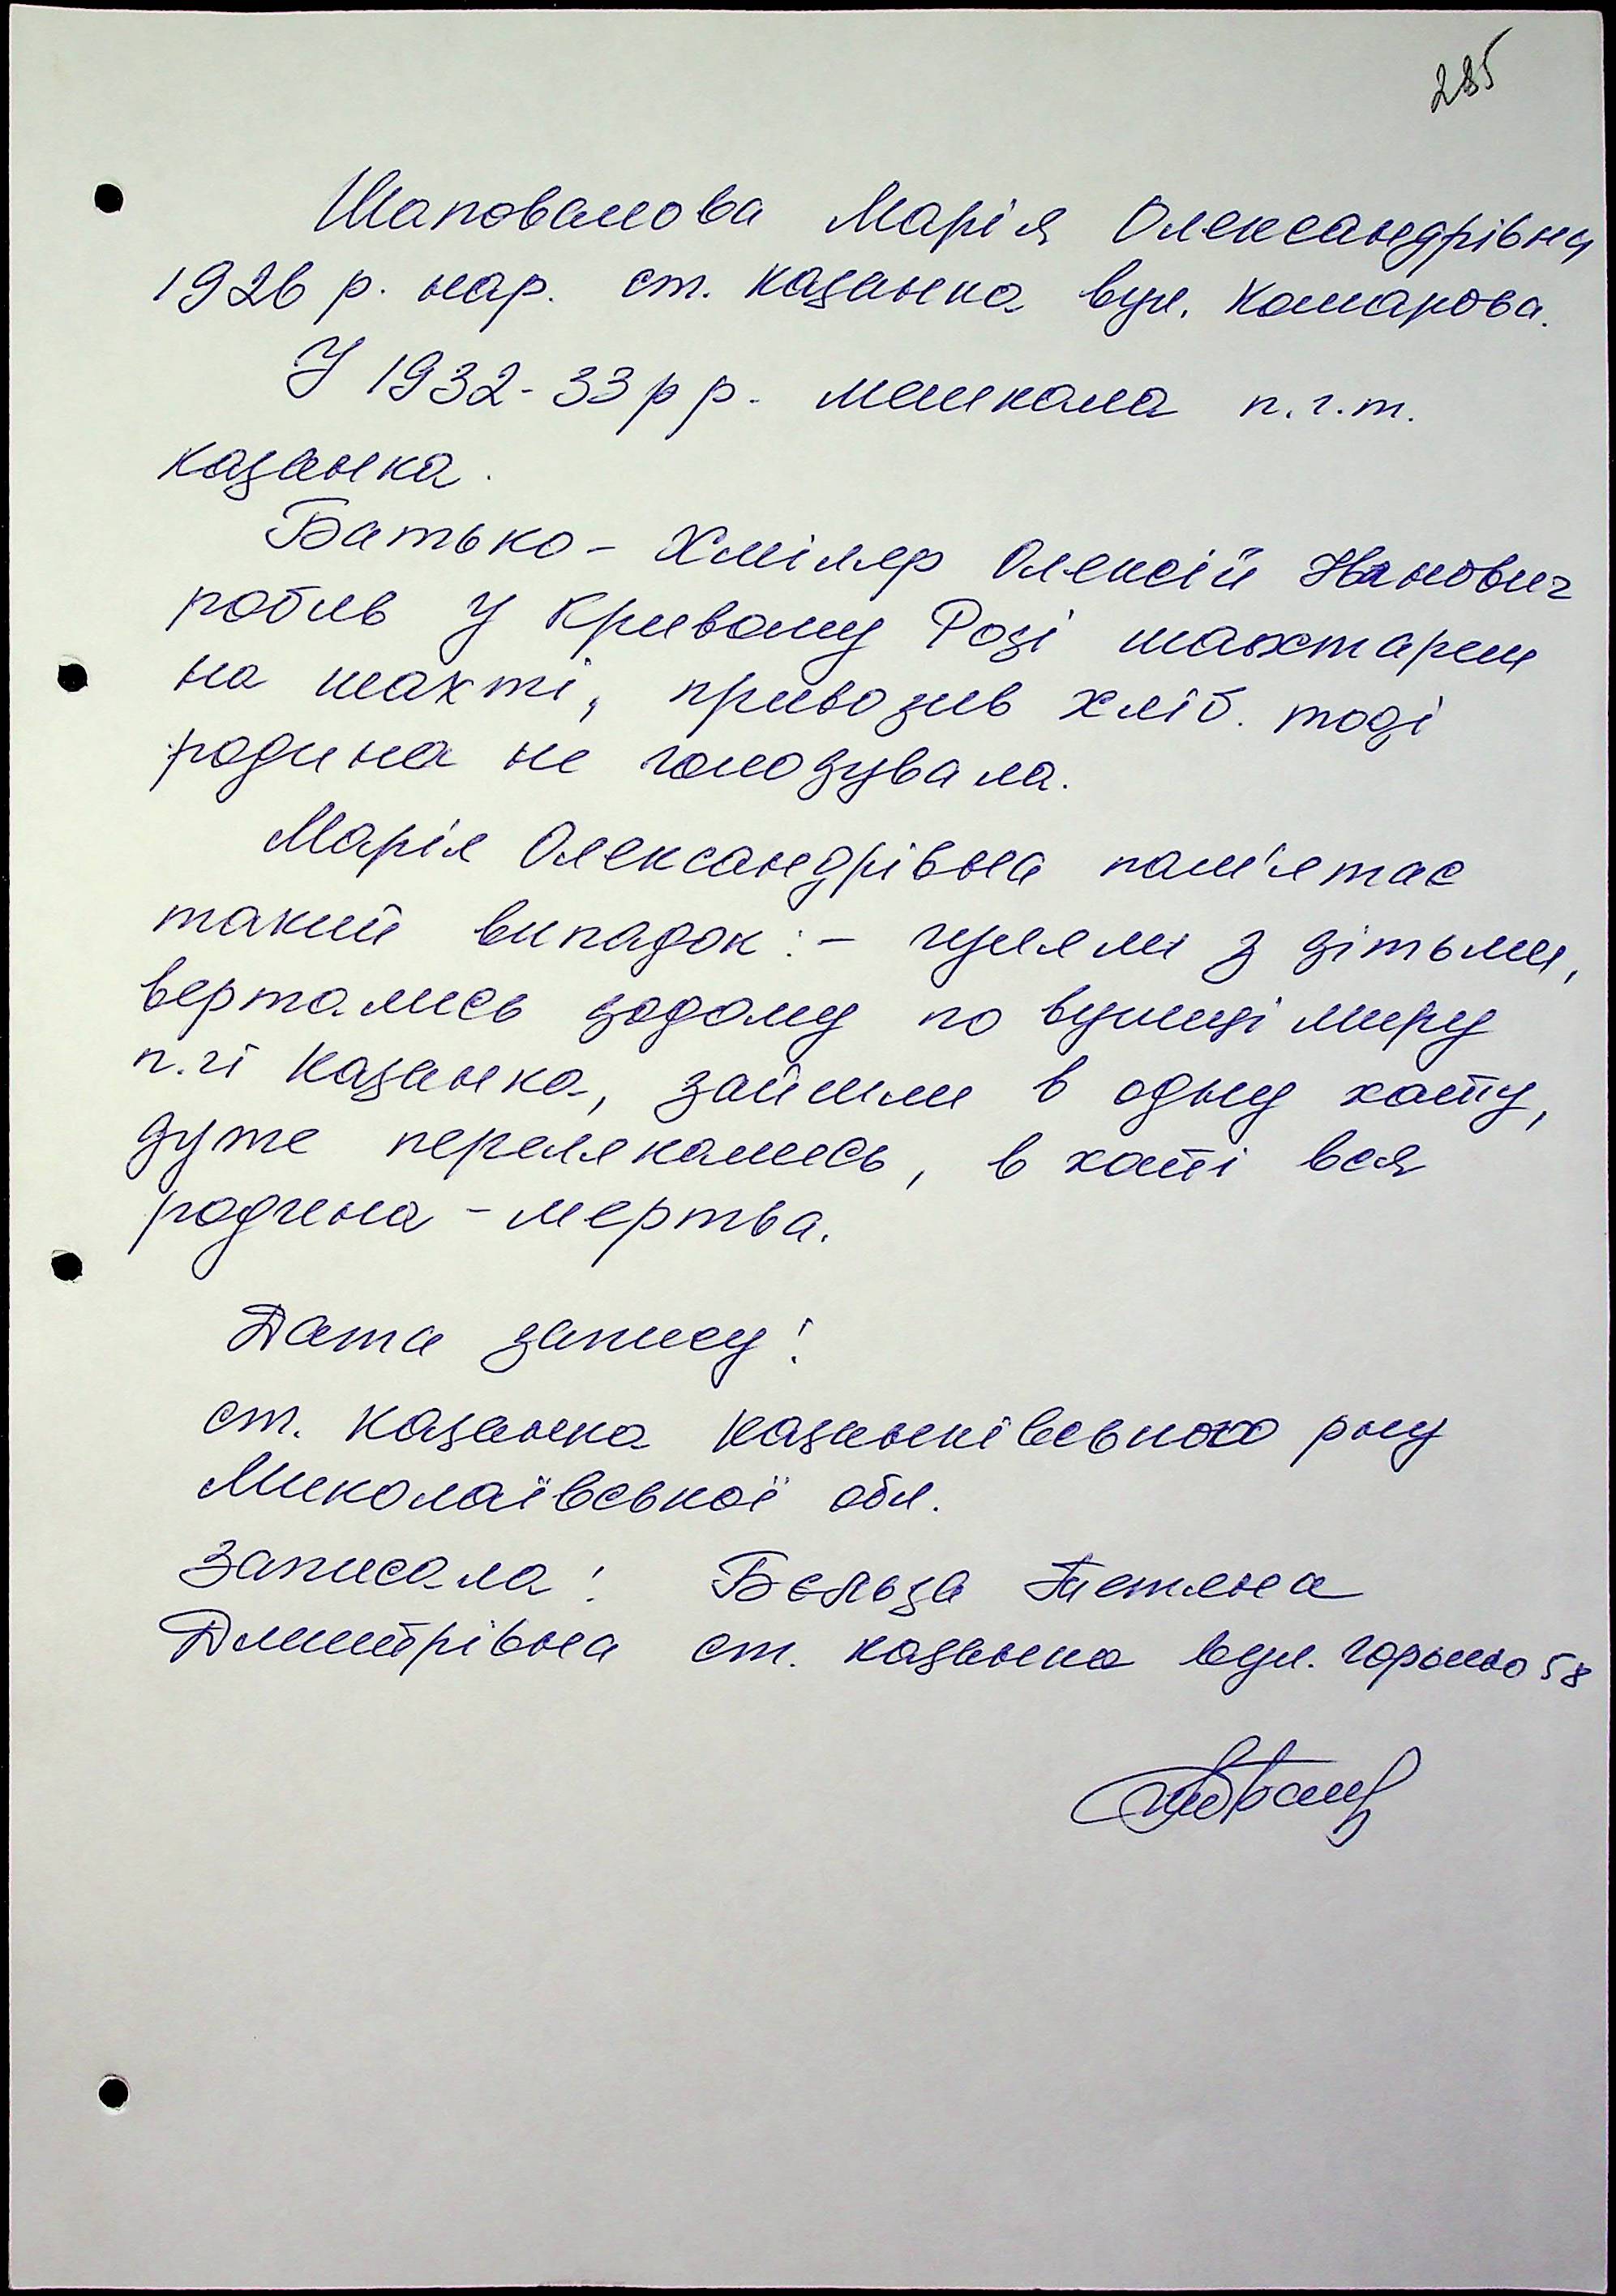 285
Шаповалова Марія Олександрівна
1926 р. нар. ст. Казанка вул. Комарова.
У 1932-33 рр. мешкала п.г.т.
Казанка.
Батько - Хміляр Олексій Іванович
робив у Кривому Розі шахтарем
на шахті, привозив хліб. тоді
родина не голодувала.
Марія Олександрівна пам'ятає
такий випадок: - гуляли з дітьми,
вертались додому по вулиці миру
п.гт Казанка, зайшли в одну хату,
дуже перелякались, в хаті вся
родина - мертва.
Дата запису:
ст. Казанка Казанківського рну
Миколаївської обл.
Записала: Бєльза
Дмитрівна ст. Казанка вул. Горького 58